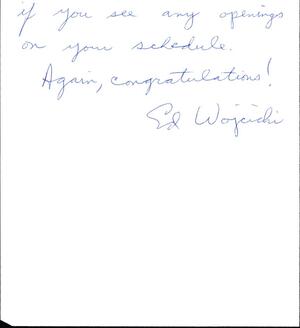 if you see any openings
on your schedule.
Again, congratulations!
Ed Wojcicki